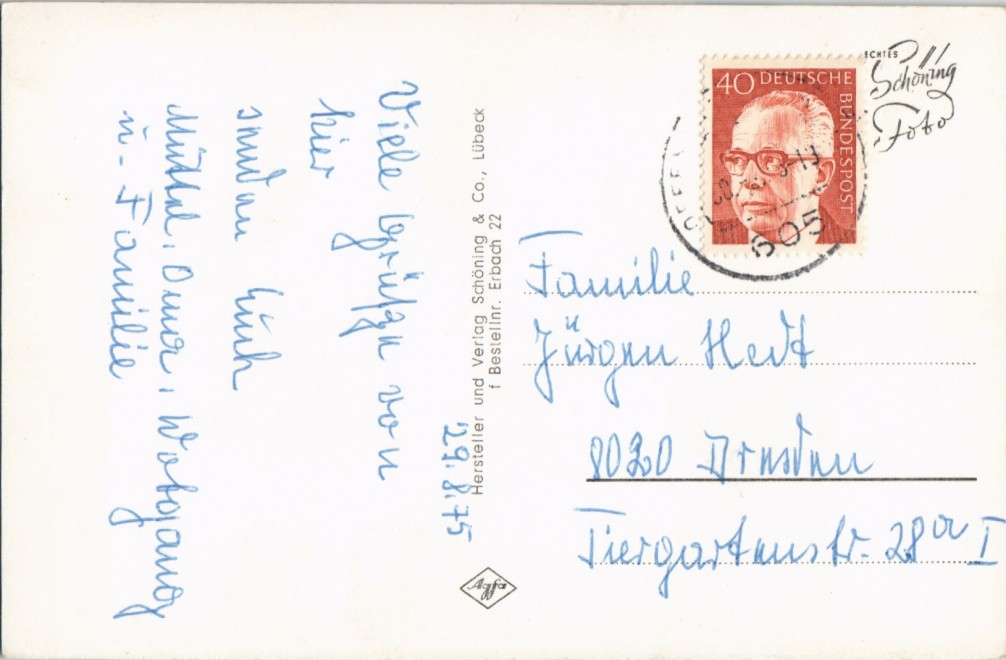 29.8.75
Viele Grüße von
hier
senden Euch
Mutti, Oma, Wolfgang
u. Familie
Hersteller und Verlag Schöning & Co., Lübeck
f Bestellnr. Erbach 22
Agfa
ECHTES
Schöning
Foto
40 DEUTSCHE
BUNDESPOST
605
Familie
Jürgen
8020 Dresden
Tiergartenstr. 28a I